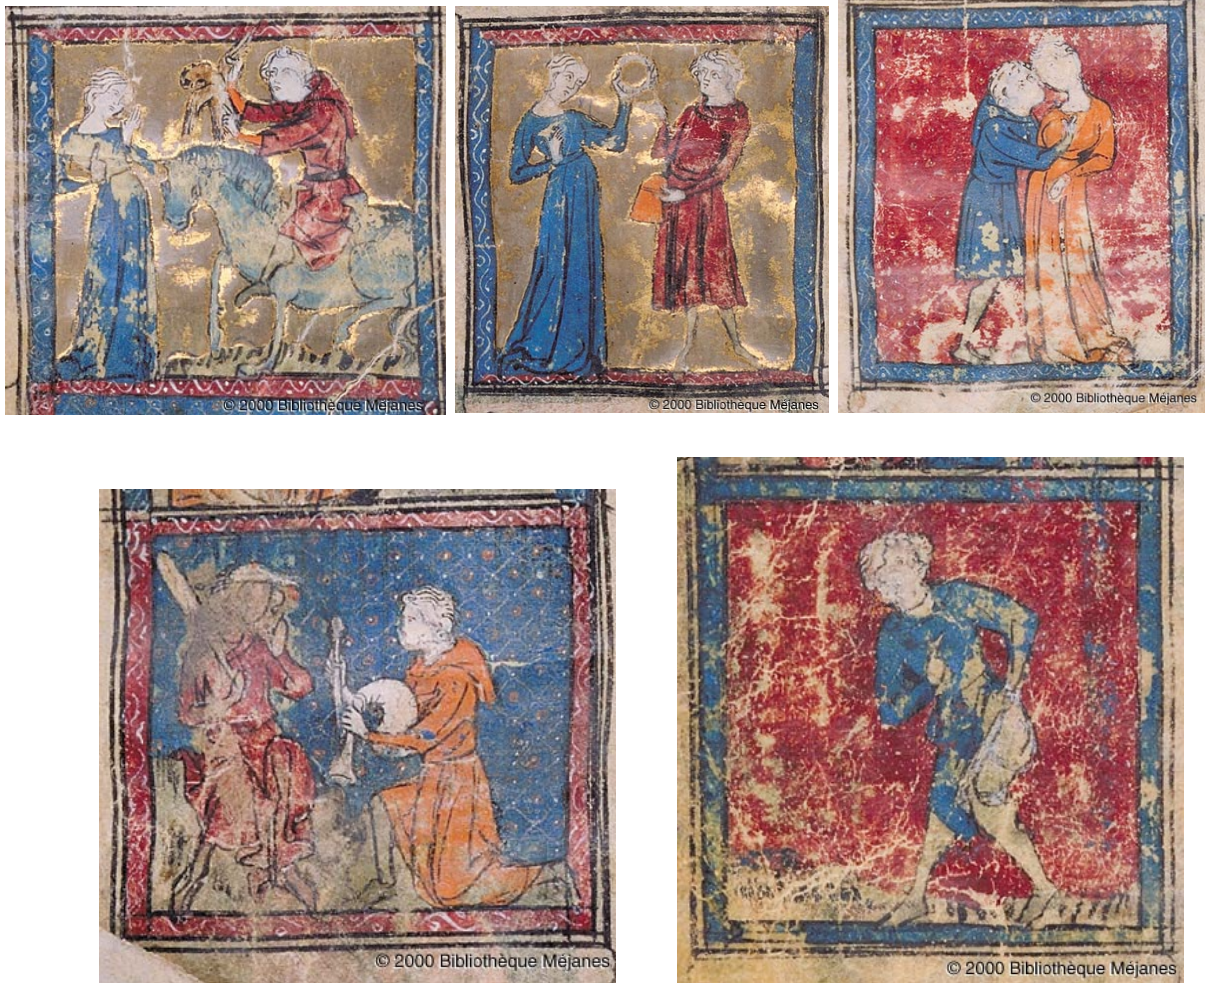 © 2000 Bibliothèque Méjanes
© 2000 Bibliothèque Méjanes
© 2000 Bibliothèque Méjanes
© 2000 Bibliothèque Méjanes
© 2000 Bibliothèque Méjanes